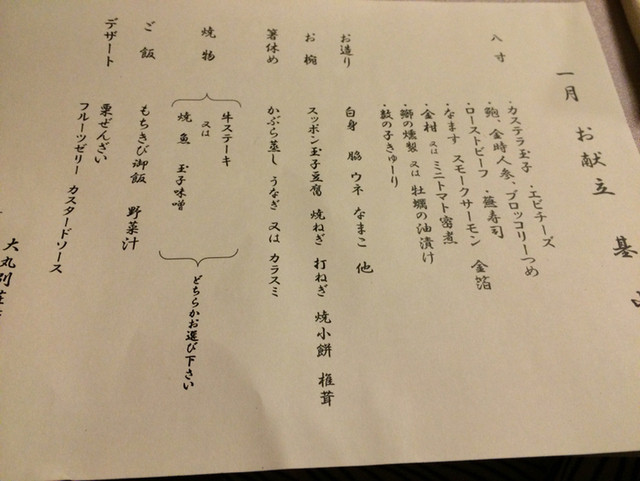 一月 お献立
八寸
・カステラ玉子 ・エビチーズ
・鮑、金時人参、ブロッコリーつめ
・ローストビーフ ・蕪寿司
・なます スモークサーモン 金箔
・金柑 又は ミニトマト蜜煮
・鰤の燻製 又は 牡蠣の油漬け
・数の子きゅーり
お造り 白身 脇 ウネ なまこ 他
お椀 スッポン玉子豆腐 焼ねぎ 打ねぎ 焼小餅 椎茸
箸休め かぶら蒸し うなぎ 又は カラスミ
焼物 牛ステーキ
又は
焼魚 玉子味噌
どちらかお選び下さい
ご飯 もちきび御飯 野菜汁
デザート 栗ぜんざい
フルーツゼリー カスタードソース
大丸別荘